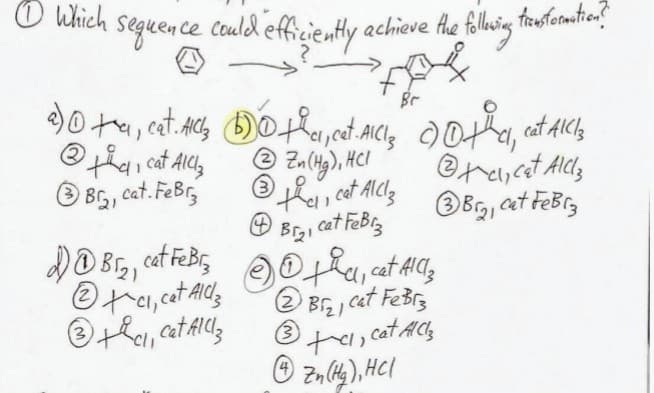 ① Which sequence could efficiently achieve the following transformation?
?
Br
a) ① Cl, cat. AlCl3
② Cl, cat AlCl3
③ Br2, cat. FeBr3
b) ① O Cl, cat. AlCl3
② Zn(Hg), HCl
③ O Cl, cat AlCl3
④ Br2, cat FeBr3
c) ① O Cl, cat AlCl3
② Cl, cat AlCl3
③ Br2, cat FeBr3
d) ① Br2, cat FeBr3
② Cl, cat AlCl3
③ O Cl, cat AlCl3
e) ① O Cl, cat AlCl3
② Br2, cat FeBr3
③ Cl, cat AlCl3
④ Zn(Hg), HCl